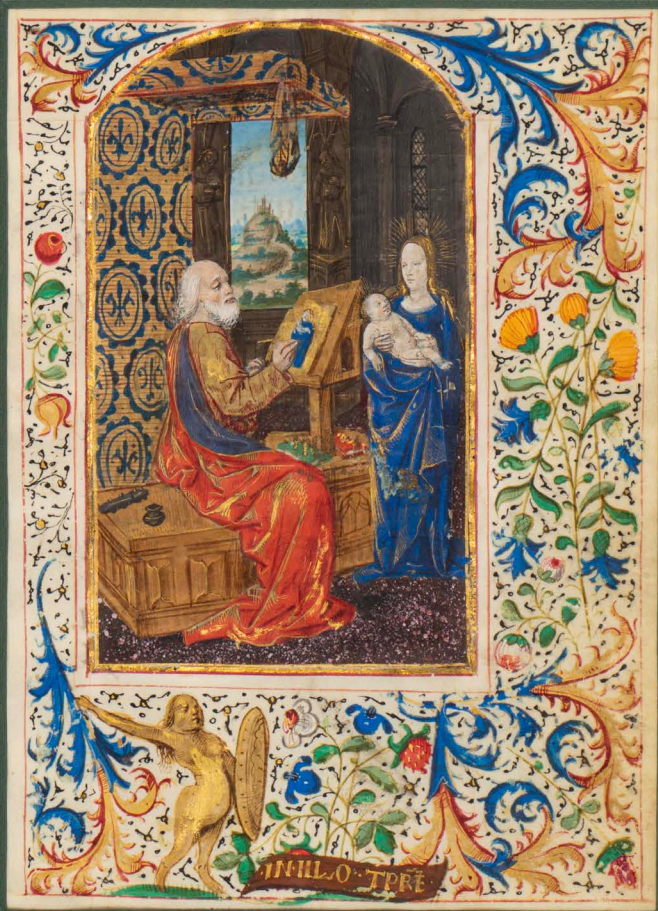 IN·ILLO·TPRE·